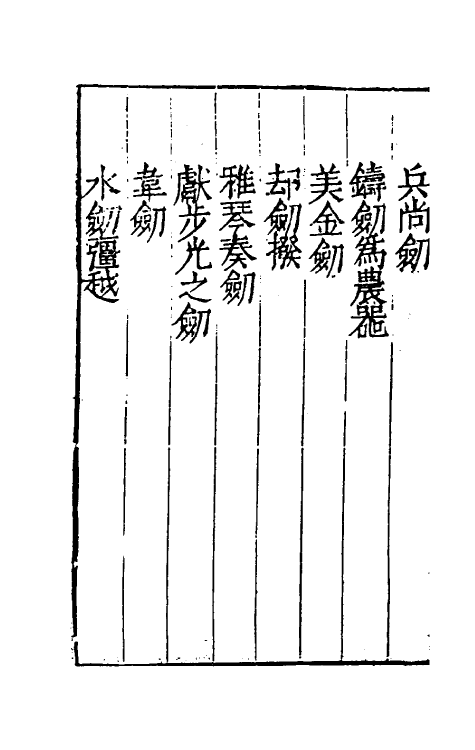 兵尚劒
鑄劒爲農器
美金劒
却劒撥
雅琴奏劒
獻步光之劒
韋劒
水劒彊越